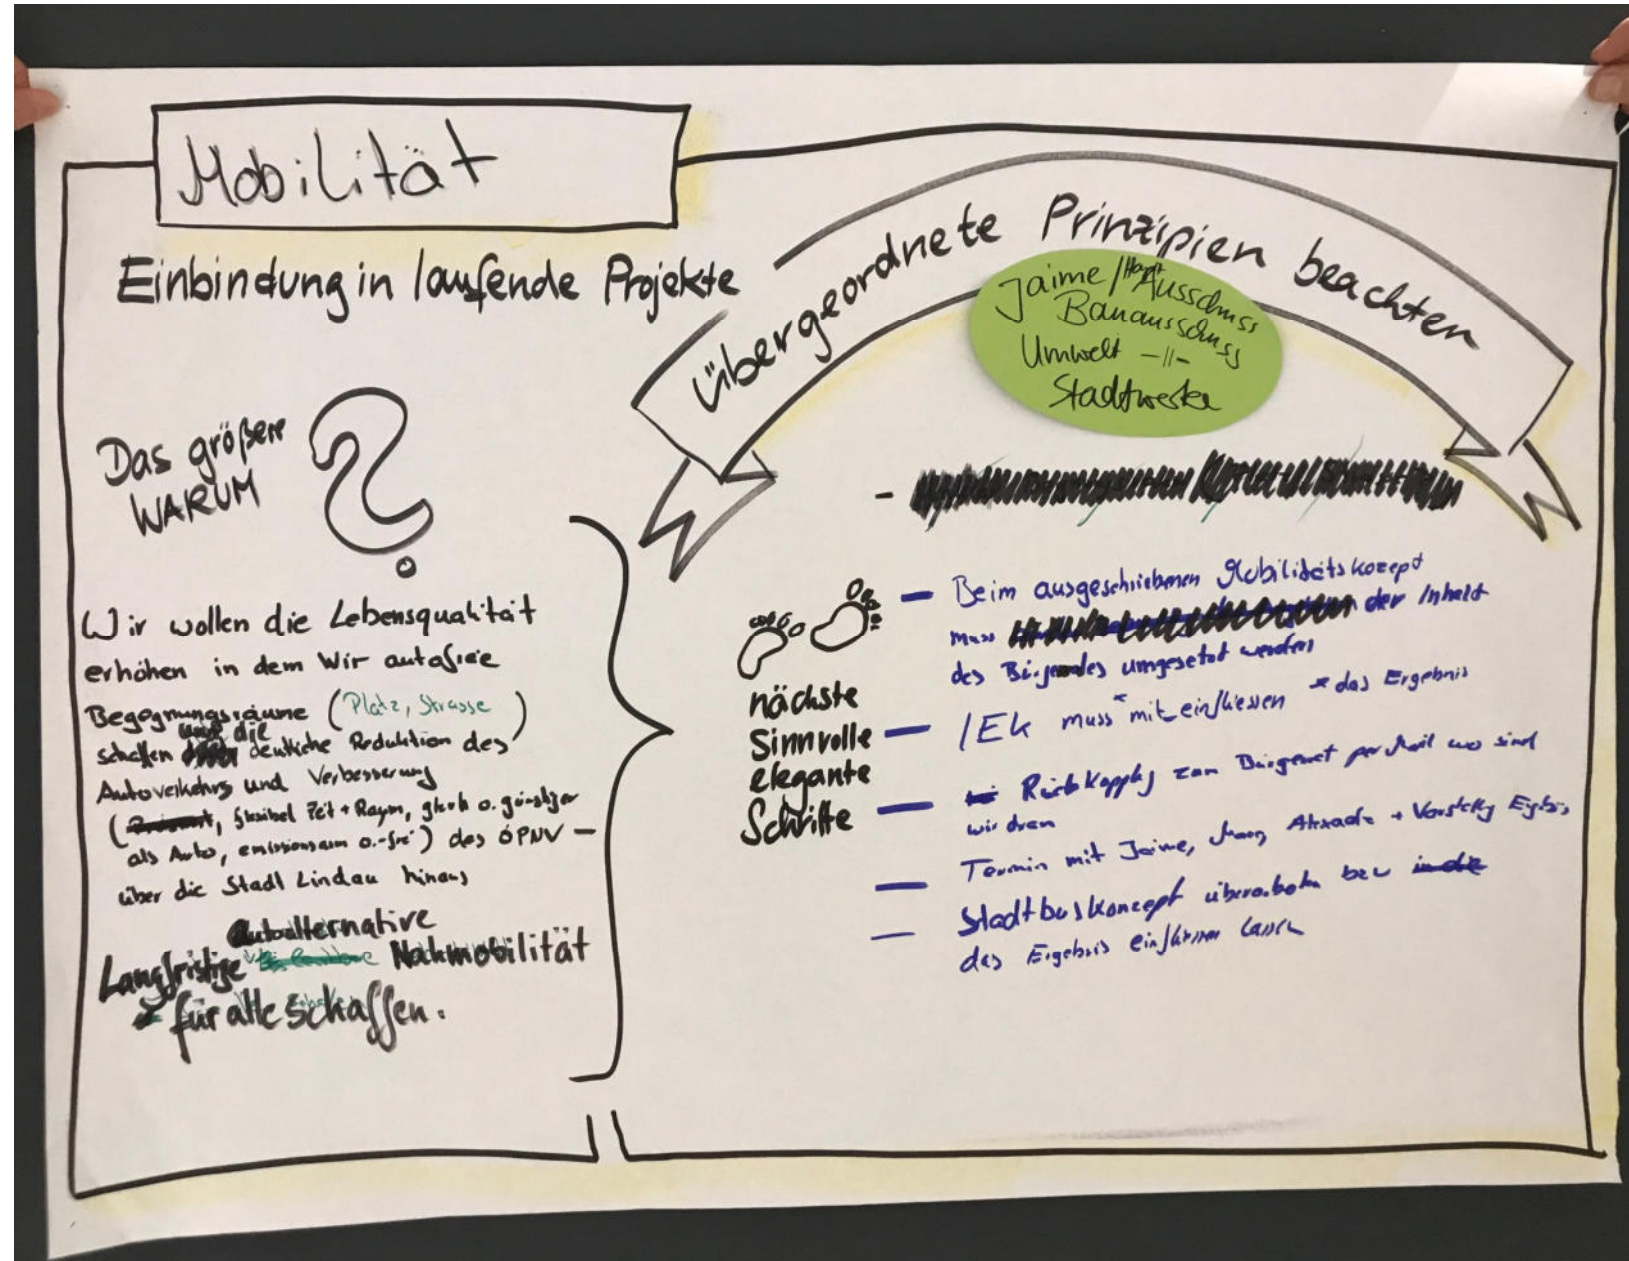 Mobilität
Einbindung in laufende Projekte
Übergeordnete Prinzipien beachten
Jaime / Haupt Ausschuss
Bauausschuss
Umwelt -॥-
Stadtwerke
Das größere
WARUM
?
Wir wollen die Lebensqualität
erhöhen in dem Wir autofreie
Begegnungsräume (Platz, Strasse)
schaffen und die deutliche Reduktion des
Autoverkehrs und Verbesserung
(flexibel Zeit + Raum, gleich o. günstiger
als Auto, emissionsarm o. -frei) des ÖPNV –
über die Stadt Lindau hinaus
autoalternative
Langfristige Nahmobilität
für alle schaffen.
nächste
Sinnvolle
elegante
Schritte
- Beim ausgeschriebenen Mobilitätskozept
muss der Inhalt
des umgesetzt werden
- IEK muss * mit einfliessen * das Ergebnis
- Rückkopplg zum Bürgerrat per Mail wo sind
wir dran
- Termin mit Jaime, + Vorstellg
- Stadtbuskonzept überarbeiten bzw in die
das Ergebnis einfliessen lassen